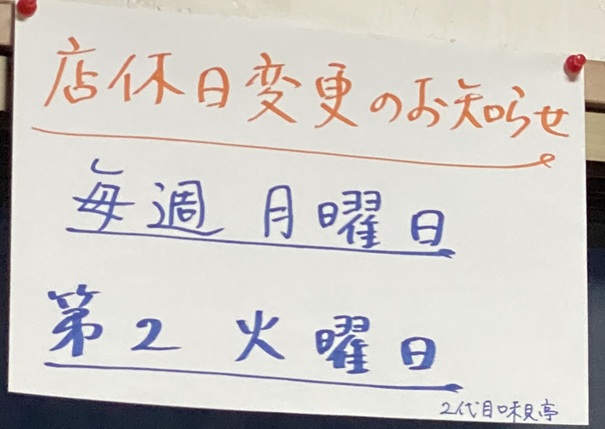 店休日変更のお知らせ
毎週 月曜日
第2 火曜日
2代目味見亭